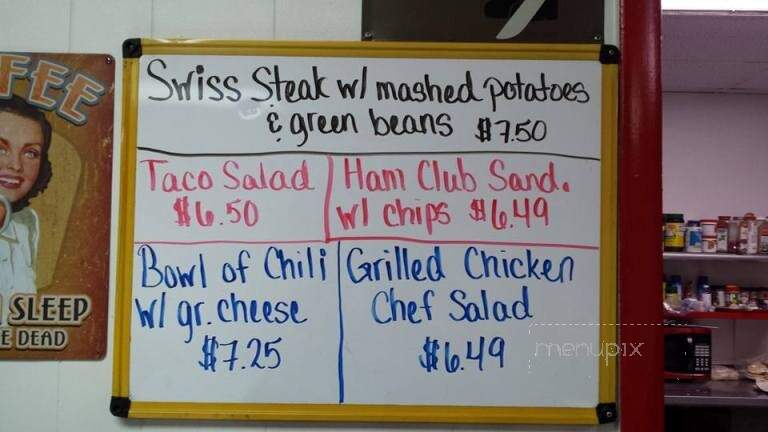 Swiss Steak w/ mashed potatoes
& green beans $7.50
Taco Salad
$6.50
Ham Club Sand.
w/ chips $6.49
Bowl of Chili
w/ gr. cheese
$7.25
Grilled Chicken
Chef Salad
$6.49
FEE
SLEEP
E DEAD
menupix